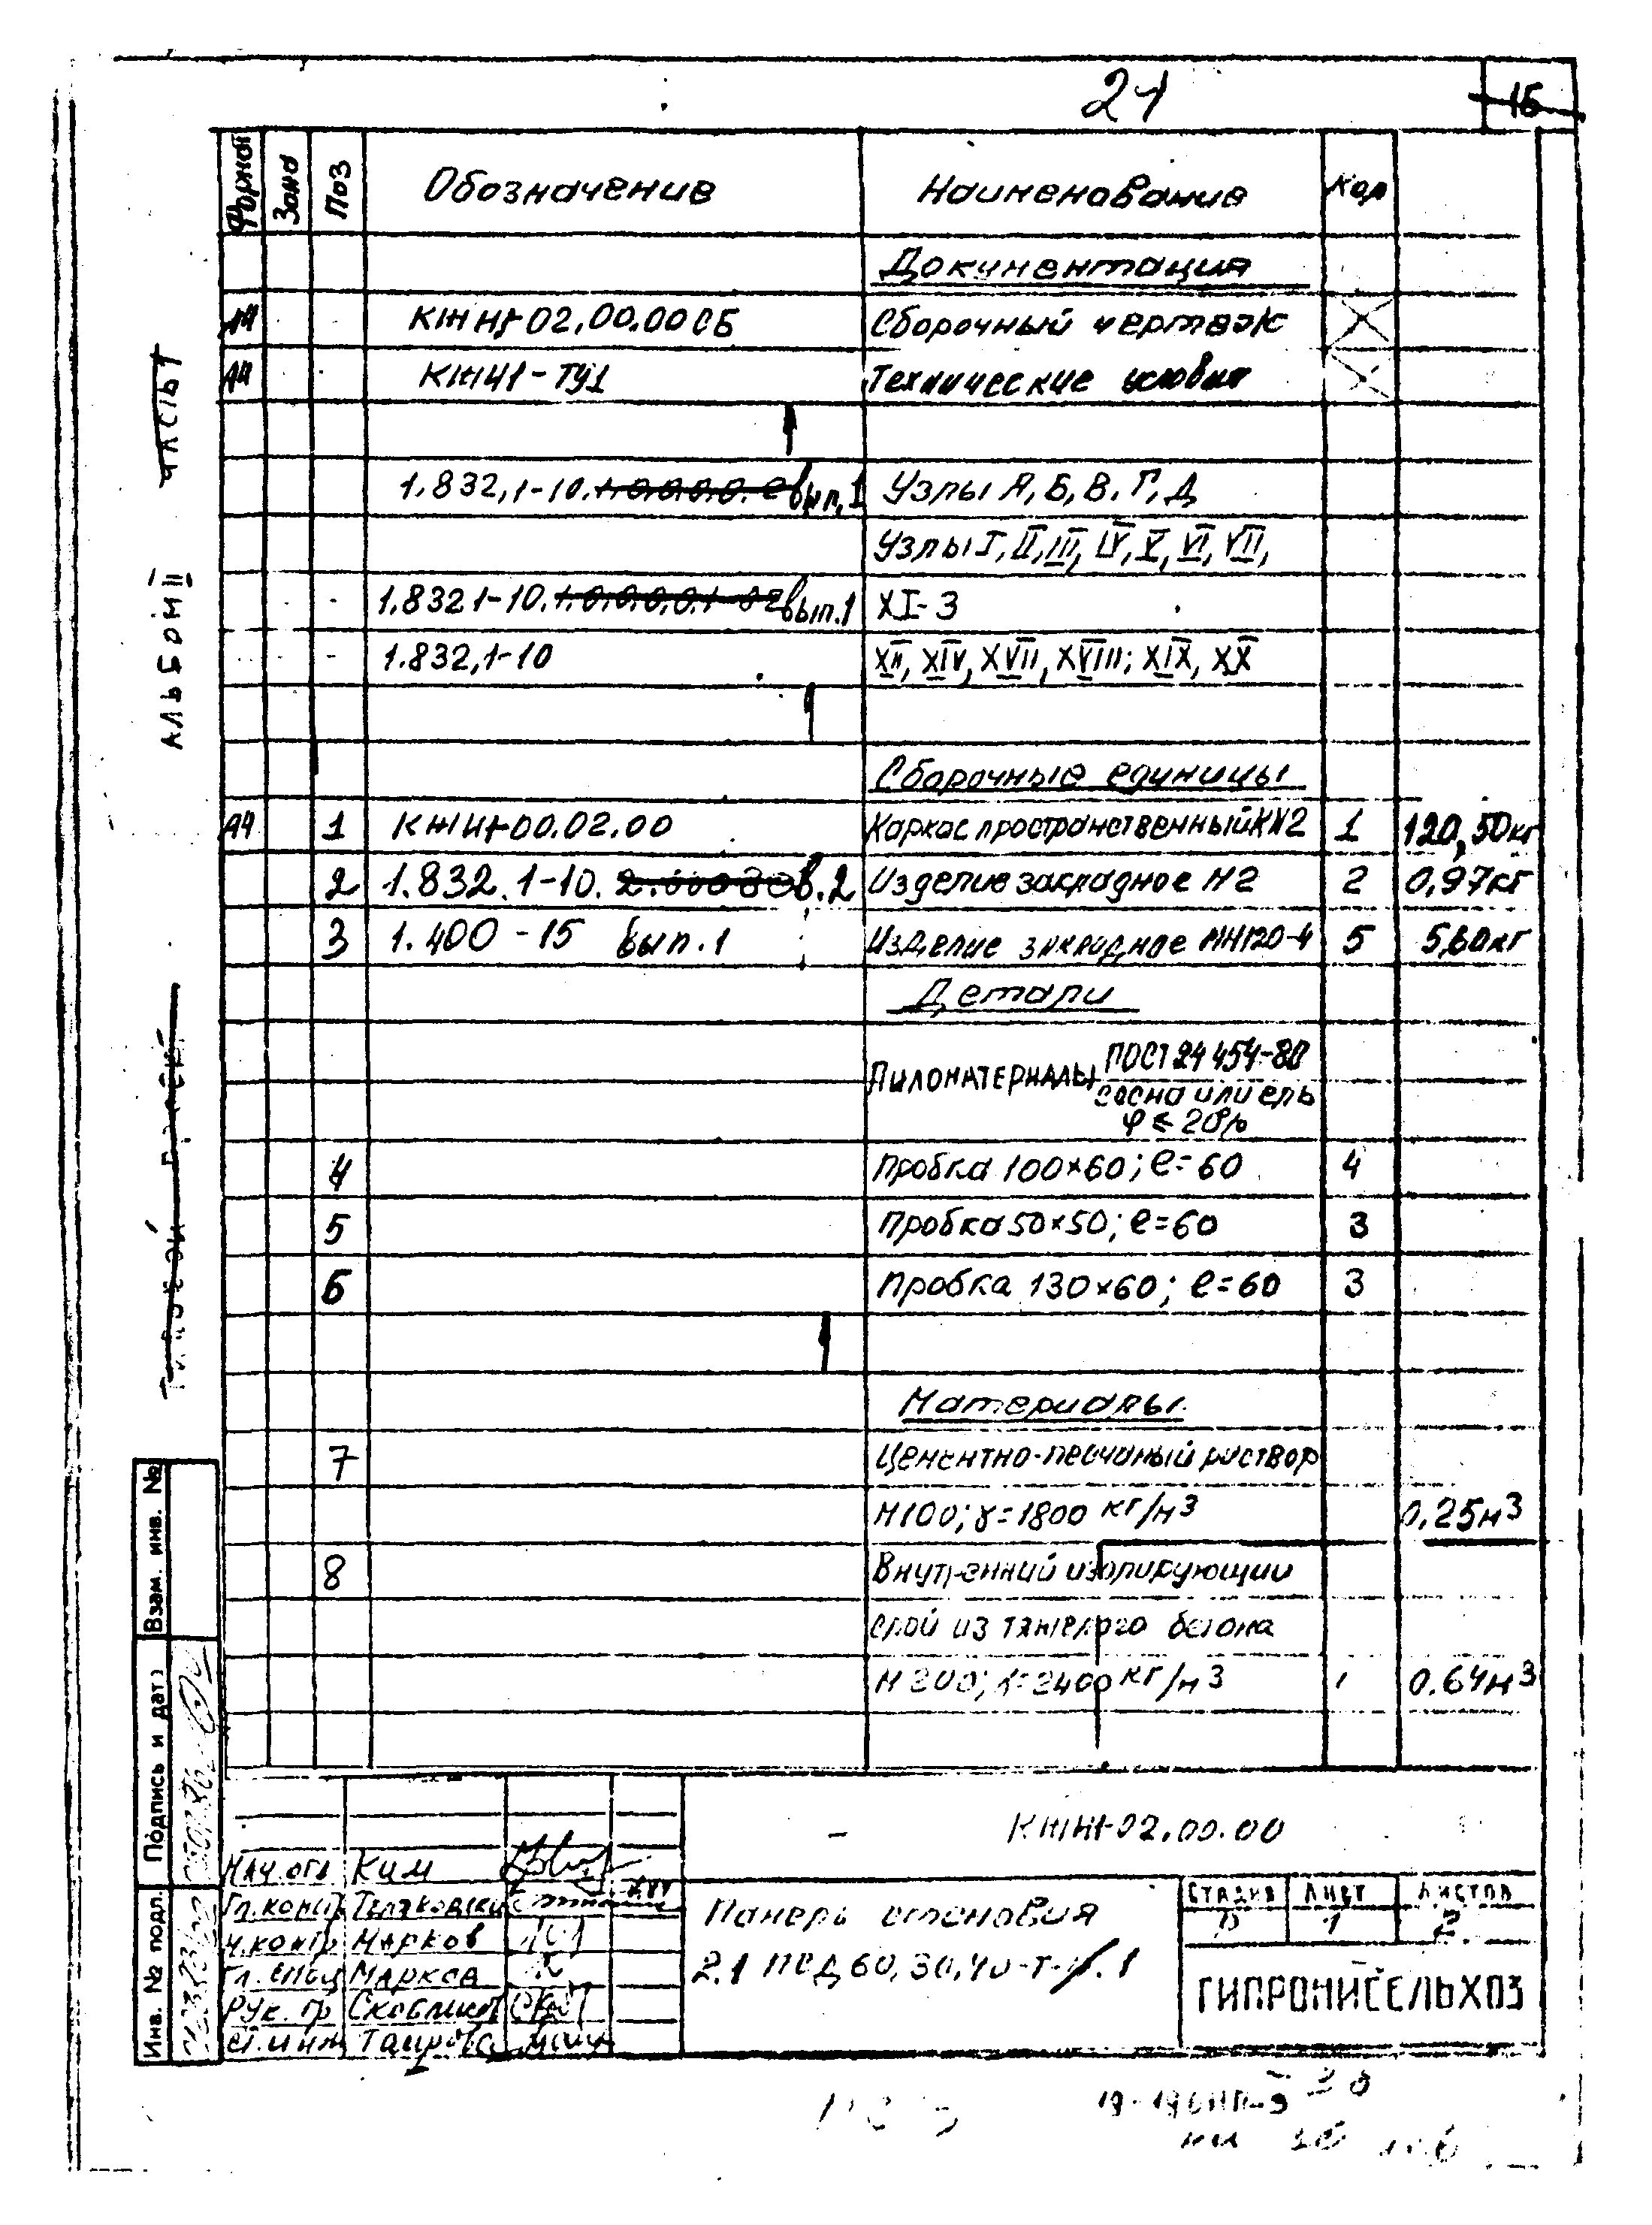 21
15
Формат Зона Поз Обозначение Наименование Кол
Документация
А4 КЖИ1-02.00.00 СБ Сборочный чертеж
А4 КЖИ1-ТУ1 Технические условия
1.832.1-10. 1.0.0.0.0. вып.1 Узлы А, Б, В, Г, Д
Узлы I, II, III, IV, V, VI, VII,
1.832 1-10. 1.0.0.0.0.1 вып.1 XI-3
1.832.1-10 XII, XIV, XVII, XVIII; XIX, XX
Сборочные единицы
А4 1 КЖИ1-00.02.00 Каркас пространственный КП2 1 120,50кг
2 1.832.1-10. в.2 Изделие закладное Н2 2 0,97кг
3 1.400-15 вып.1 Изделие закладное МН120-4 5 5,60кг
Детали
Пиломатериалы ГОСТ 24454-80
сосна или ель
φ ≤ 20%
4 Пробка 100×60; ℓ=60 4
5 Пробка 50×50; ℓ=60 3
6 Пробка 130×60; ℓ=60 3
Материалы
7 Цементно-песчаный раствор
М100; γ=1800 кг/м3 0,25м3
8 Внутренний изолирующий
слой из тяжелого бетона
М200; γ=2400 кг/м3 0.64м3
КЖИ1-02.00.00
Нач.отд Ким
Гл.констр
Н.контр Марков
Гл. спец Марков
Рук. гр
Ст.инж Таирова
Панель стеновая
2.1 ПСД 60.30.40-Т-1
Стадия Лист Листов
Р 1 2
ГИПРОНИСЕЛЬХОЗ
ЧАСТЬ 1
АЛЬБОМ II
Взам. инв. №
Подпись и дата
Инв. № подл.